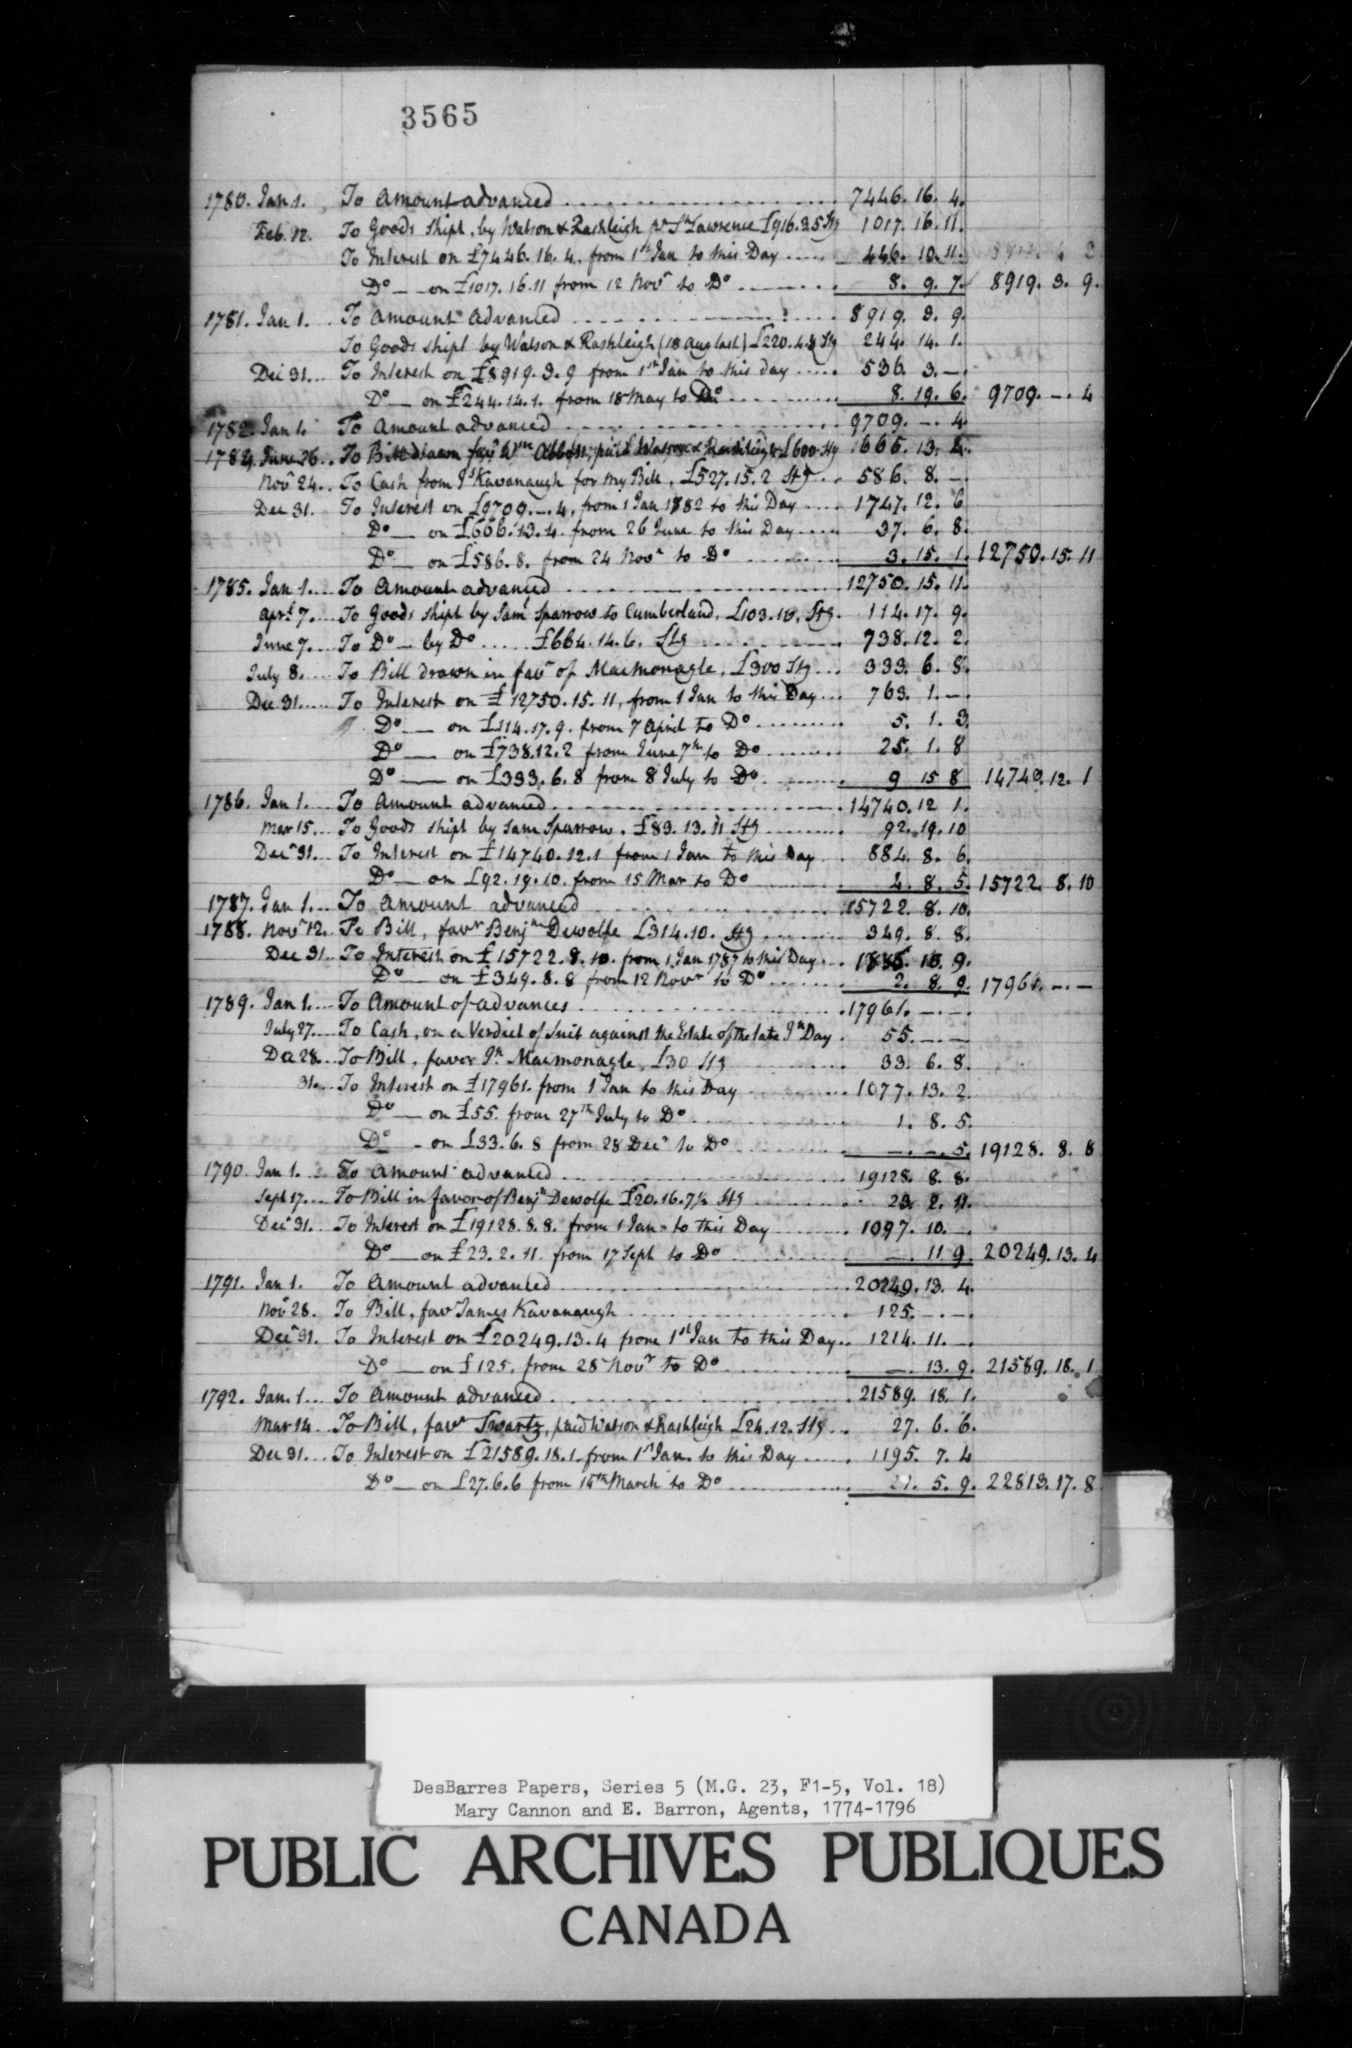 3565
1780. Jan 1. To Amount advanced 7446. 16. 4.
Feb. 12. To Goods Shipt, by Watson & Rashleigh pr St Lawrence £916.3.5 Stg 1017. 16. 11.
To Interest on £7446. 16. 4. from 1st Jan to this Day 446. 10. 11.
Do — on £1017. 16. 11 from 12 Novr to Do 8. 9. 7. 8919. 3. 9.
1781. Jan 1. To Amount Advanced 8919. 3. 9.
To Goods shipt by Watson & Rashleigh (18 Aug last) £220.4.8 Stg 244. 14. 1.
Dec 31. To Interest on £8919. 3. 9 from 1st Jan to this day 536. 3. —
Do — on £244. 14. 1. from 18 May to Do 8. 19. 6. 9709. —. 4
1782 Jan 1. To Amount advanced 9709. —. 4.
1784. June 26. To Bill drawn favr Wm Abbott, paid Watson & Rashleigh £600 Stg 666. 13. 4.
Novr 24. To Cash from Js Kavanaugh for my Bill, £527. 15. 2 Stg 586. 8. —
Dec 31. To Interest on £9709. —. 4, from 1 Jan 1782 to this Day 1747. 12. 6
Do — on £666. 13. 4. from 26 June to this Day 37. 6. 8.
Do — on £586. 8. from 24 Novr to Do 3. 15. 1. 12750. 15. 11
1785. Jan 1. To Amount advanced 12750. 15. 11.
Aprl 7. To Goods shipt by Saml Sparrow to Cumberland, £103. 10, Stg. 114. 17. 9.
June 7. To Do — by Do £664. 14. 6. Stg 738. 12. 2.
July 8. To Bill drawn in favr of Macmonagle, £300 Stg 333. 6. 8.
Dec 31. To Interest on £12750. 15. 11, from 1 Jan to this Day 763. 1. —
Do — on £114. 17. 9. from 7 April to Do 5. 1. 3.
Do — on £738. 12. 2 from June 7th to Do 25. 1. 8
Do — on £333. 6. 8 from 8 July to Do 9 15 8 14740. 12. 1
1786. Jan 1. To Amount advanced 14740. 12 1.
Mar 15. To Goods shipt by Sam Sparrow. £83. 13. 11 Stg 92. 19. 10
Decr 31. To Interest on £14740. 12. 1 from 1 Jan to this Day 884. 8. 6.
Do — on £92. 19. 10. from 15 Mar to Do 4. 8. 5. 15722. 8. 10
1787. Jan 1. To Amount advanced 15722. 8. 10.
1788. Novr 12. To Bill, favr Benjn Dewolfe £314. 10. Stg 349. 8. 8.
Dec 31. To Interest on £15722. 8. 10. from 1 Jan 1787 to this Day 1886. 13. 9.
Do — on £349. 8. 8 from 12 Novr to Do 2. 8. 9. 17961. —. —
1789. Jan 1. To Amount of advances 17961. —. —
July 27. To Cash, on a Verdict of Suit against the Estate of the late Jn Day 55. —. —
Dec 28. To Bill, favor Jn Macmonagle, £30 Stg 33. 6. 8.
31. To Interest on £17961. from 1 Jan to this Day 1077. 13. 2.
Do — on £55. from 27th July to Do 1. 8. 5.
Do — on £33. 6. 8 from 28 Decr to Do —. —. 5. 19128. 8. 8
1790. Jan 1. To Amount advanced 19128. 8. 8.
Sept 17. To Bill in favor of Benjn Dewolfe £20. 16. 7½ Stg 23. 2. 11.
Decr 31. To Interest on £19128. 8. 8. from 1 Jan to this Day 1097. 10. —
Do — on £23. 2. 11 from 17 Sept to Do —. 11 9. 20249. 13. 4
1791. Jan 1. To Amount advanced 20249. 13. 4.
Novr 28. To Bill, favr James Kavanaugh 125. —. —
Decr 31. To Interest on £20249. 13. 4 from 1st Jan to this Day 1214. 11. —
Do — on £125. from 28 Novr to Do —. 13. 9. 21589. 18. 1
1792. Jan. 1 To Amount advanced 21589. 18. 1.
Mar 14. To Bill, favr Swartz, paid Watson & Rashleigh £24. 12. Stg 27. 6. 6.
Dec 31. To Interest on £21589. 18. 1. from 1st Jan. to this Day 1195. 7. 4
Do — on £27. 6. 6 from 14th March to Do 21. 5. 9. 22813. 17. 8
DesBarres Papers, Series 5 (M.G. 23, F1-5, Vol. 18)
Mary Cannon and E. Barron, Agents, 1774-1796
PUBLIC ARCHIVES PUBLIQUES
CANADA